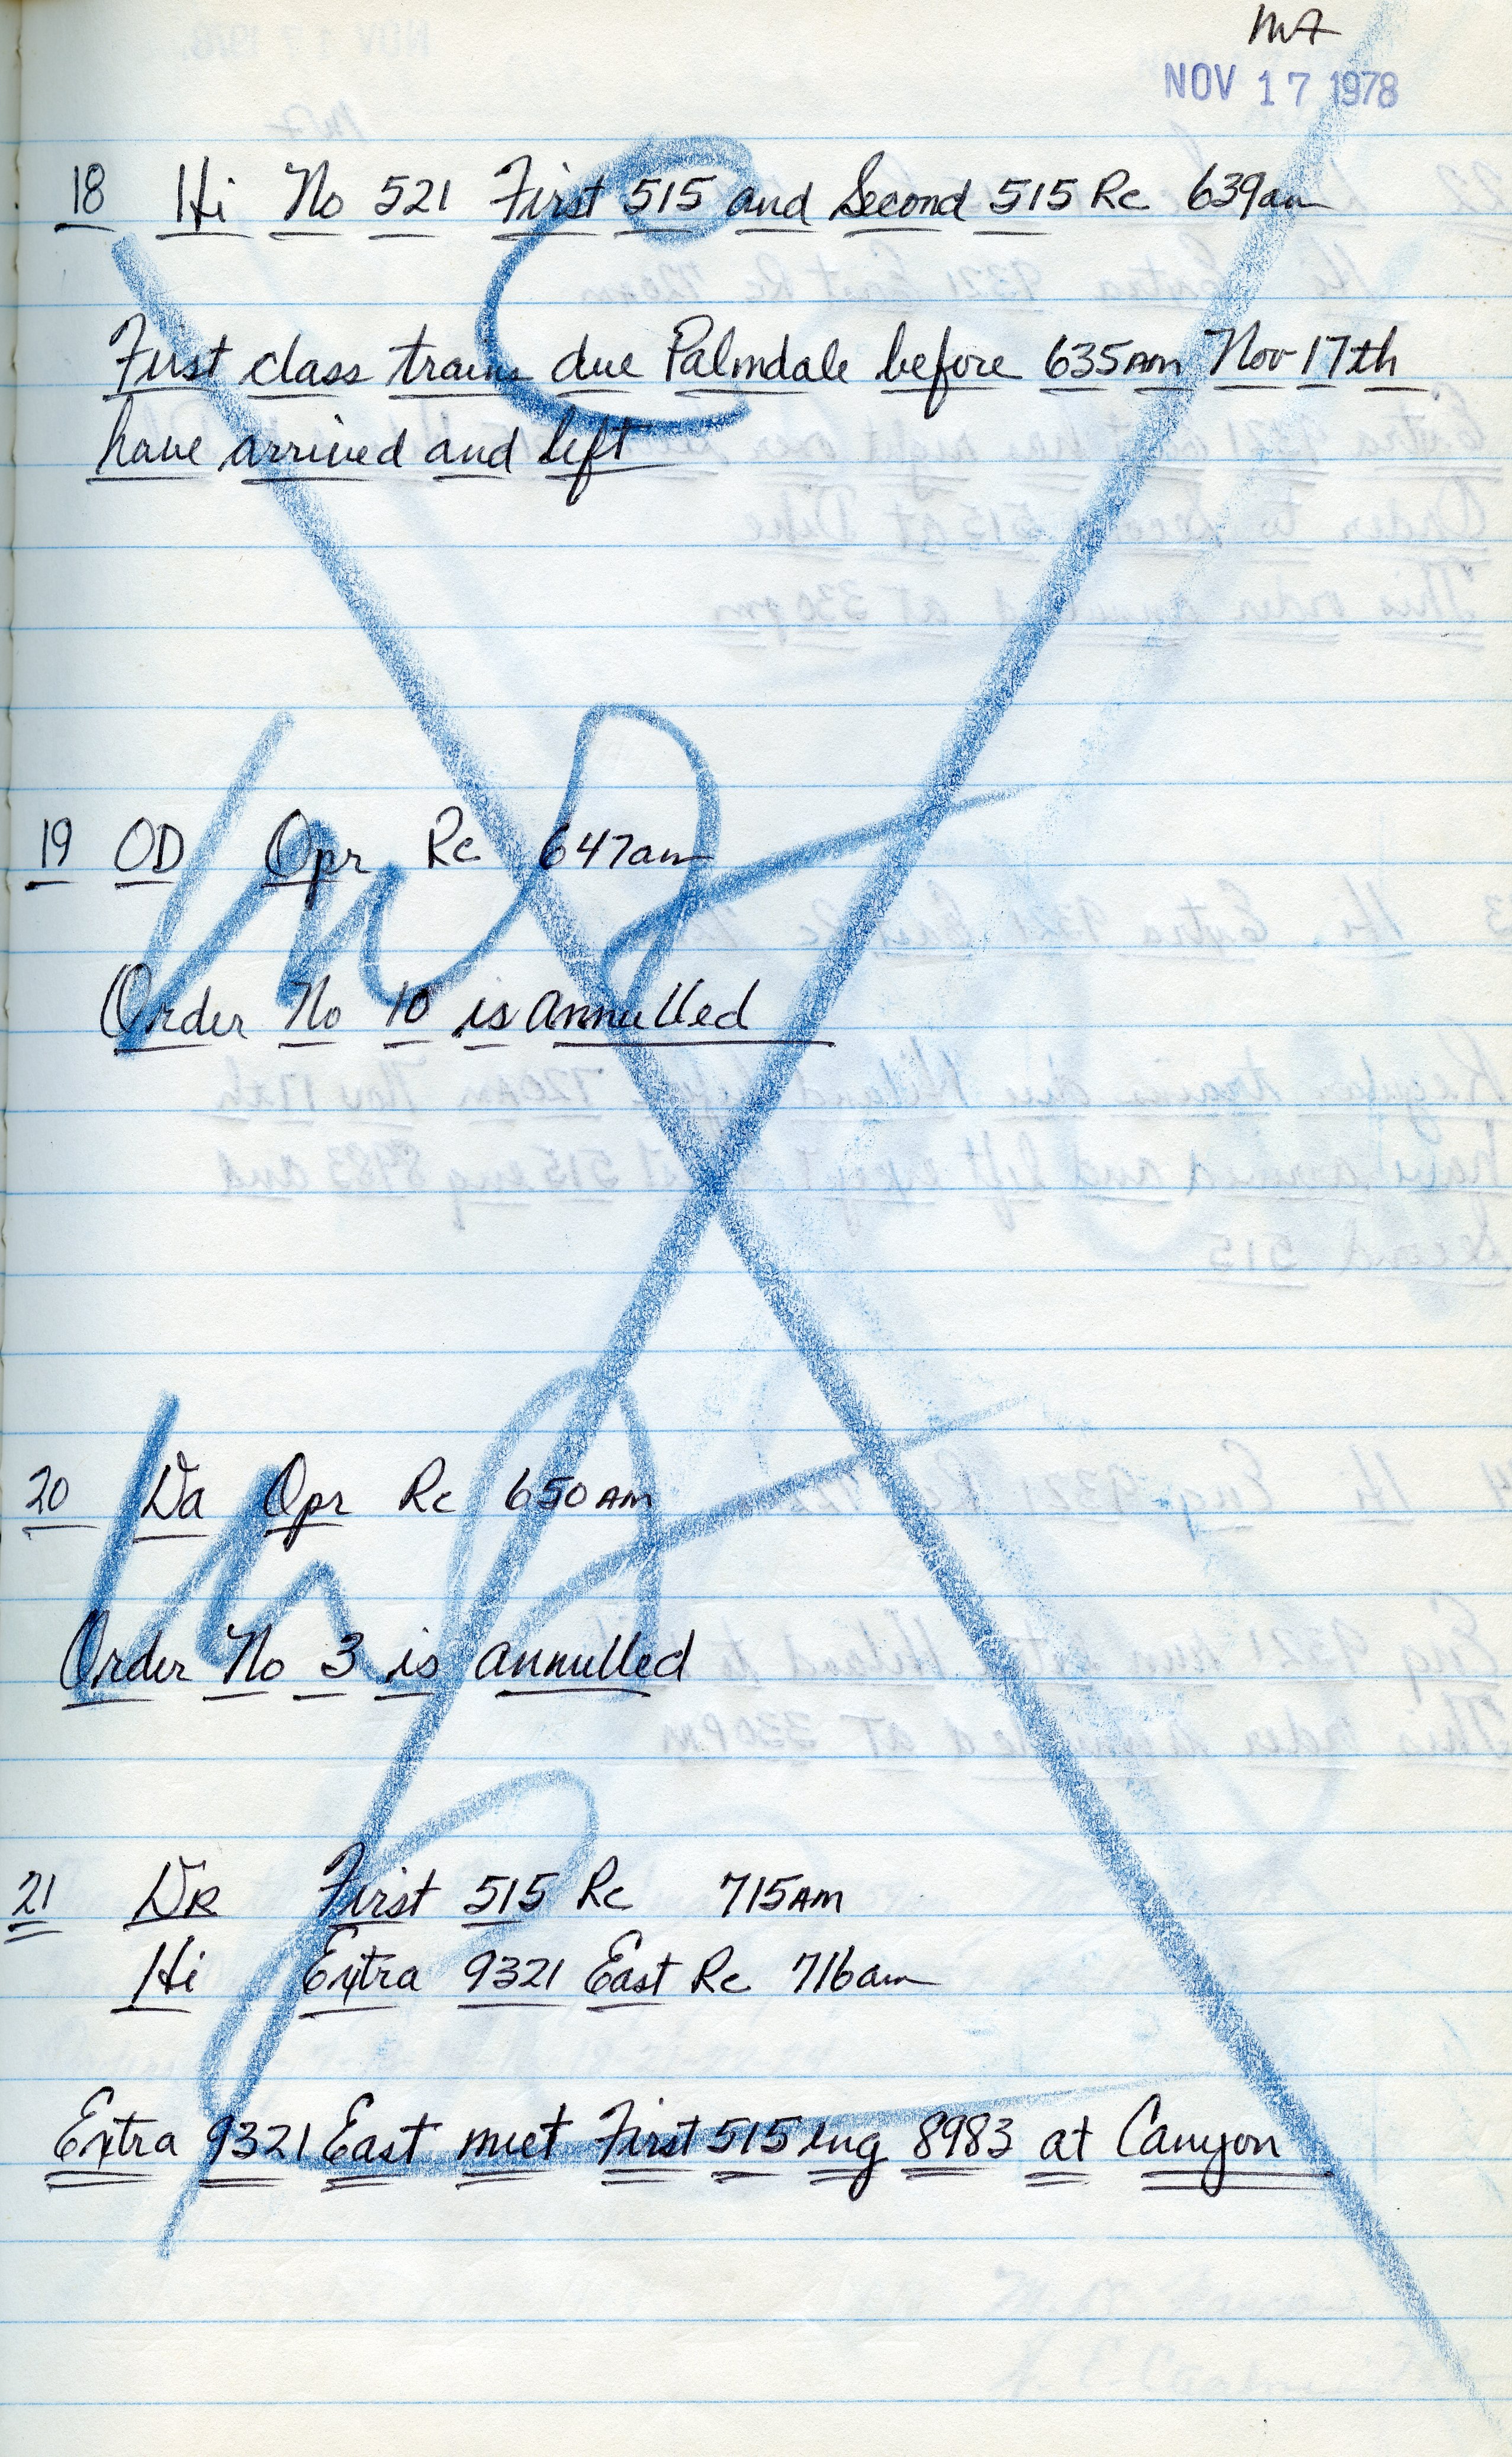 NOV 17 1978
18 Hi No 521 First 515 and Second 515 Rc 639am
First class trains due Palmdale before 635AM Nov 17th
have arrived and left
19 OD Opr Rc 647am
Order No 10 is annulled
20 Da Opr Rc 650AM
Order No 3 is annulled
21 DR First 515 Rc 715AM
Hi Extra 9321 East Rc 716am
Extra 9321 East meet First 515 eng 8983 at Canyon